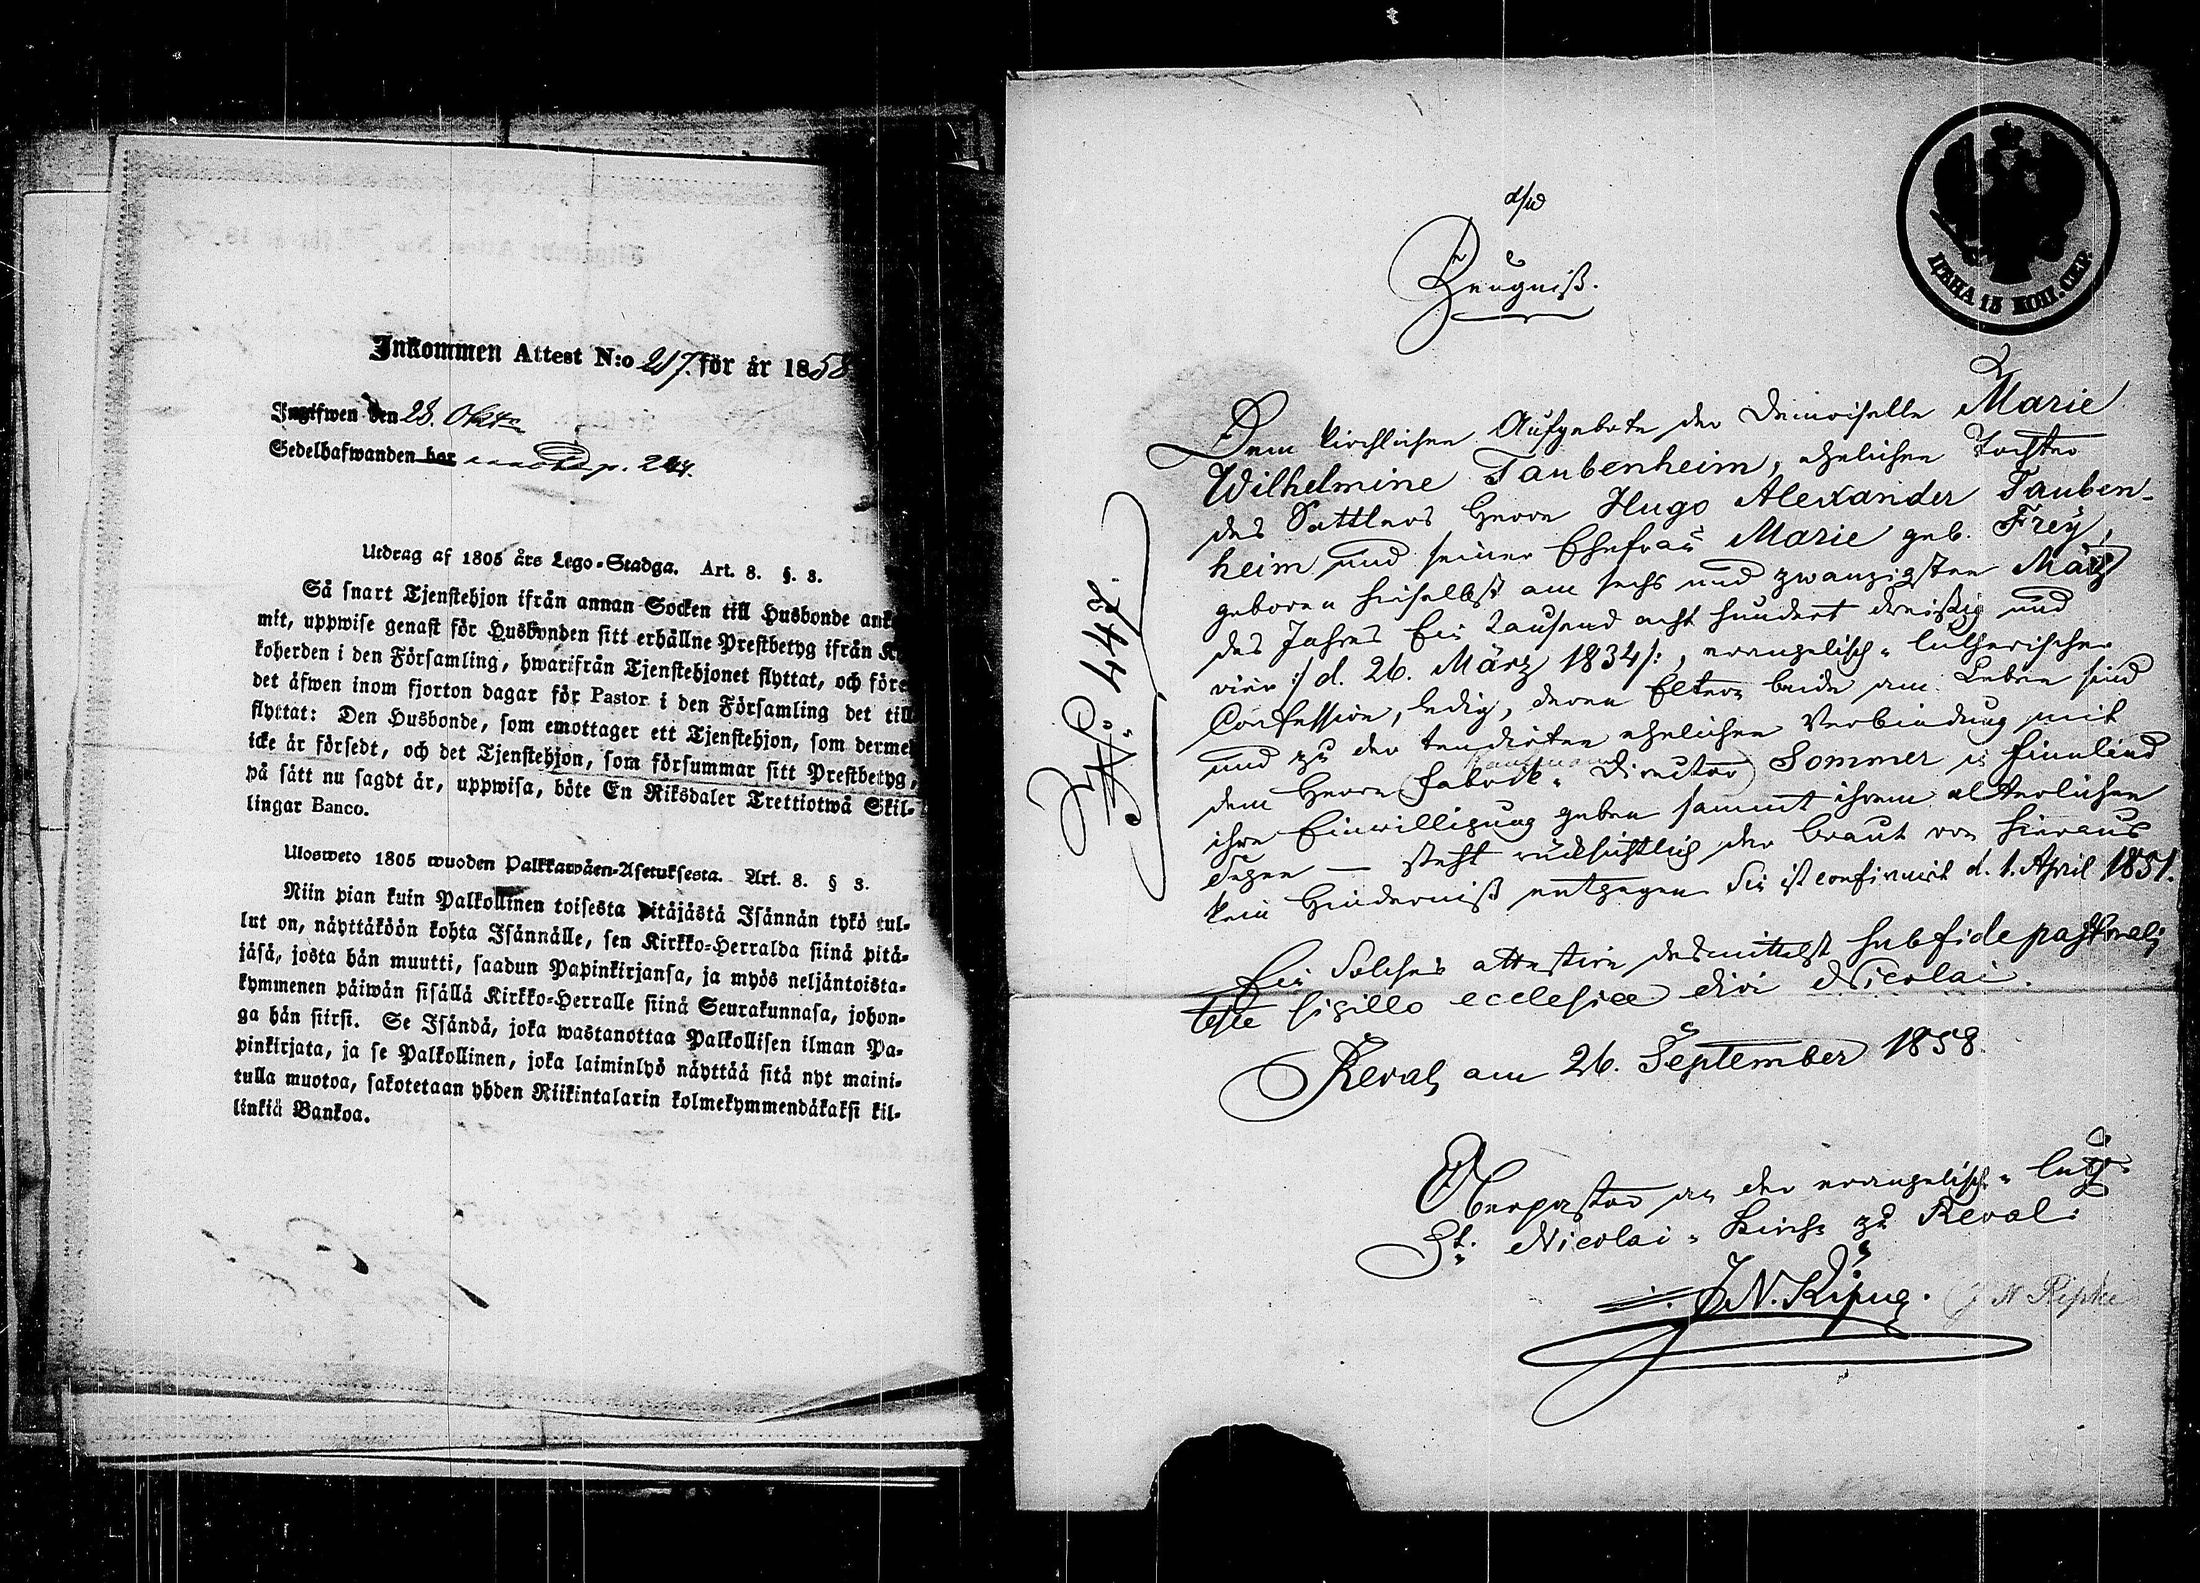 Inkommen Attest N:o 217. för år 1858
Ingifwen den 28. Oktr
Sedelhafwanden har
Utdrag af 1805 års Lego-Stadga. Art. 8. §. 3.
Så snart Tjenstehjon ifrån annan Socken till Husbonde
mit, uppwise genast för Husbonden sitt erhållne Prestbetyg ifrån
koherden i den Församling, hwarifrån Tjenstehjonet flyttat, och före
det äfwen inom fjorton dagar för Pastor i den Församling det till
flyttat: Den Husbonde, som emottager ett Tjenstehjon, som
icke är försedt, och det Tjenstehjon, som försummar sitt Prestbetyg,
på sätt nu sagdt är, uppwisa, böte En Riksdaler Trettiotwå Skil-
lingar Banco.
Ulosweto 1805 wuoden Palkkawäen-Asetuksesta. Art. 8. § 3.
Niin pian kuin Palkollinen toisesta pitäjästä Isännän tykö tul-
lut on, näyttäköön kohta Isännälle, sen Kirkko-Herralda siinä pitä-
jäsä, josta hän muutti, saadun Papinkirjansa, ja myös neljäntoista-
kymmenen päiwän sisällä Kirkko-Herralle siinä Seurakunnasa, johon-
ga hän siirsi. Se Isändä, joka wastanottaa Palkollisen ilman Pa-
pinkirjata, ja se Palkollinen, joka laiminlyö näyttää sitä nyt maini-
tulla muotoa, sakotetaan yhden Riikintalarin kolmekymmendäkaksi kil-
linkiä Bankoa.
ЦѢНА 15 КОП. СЕР.
Zeugniß.
No 448.
Dem kirchlichen Aufgebote der Demoiselle Marie
Wilhelmine Taubenheim, ehelichen Tochter
des Sattlers Herrn Hugo Alexander Tauben-
heim und seiner Ehefrau Marie geb. Frey,
geboren hieselbst am sechs und zwanzigsten März
des Jahres Ein Tausend acht hundert dreißig und
vier :/ d. 26. März 1834 /:, evangelisch-lutherischer
Confession, ledig, deren Eltern beide am Leben sind
und zu der tendirten ehelichen Verbindung mit
Kaufmann
dem Herrn (Fabrik-Director) Sommer in Finnland
ihre Einwilligung geben sammt ihrem elterlichen
Segen — steht rücksichtlich der Braut von hieraus
kein Hinderniß entgegen. Sie ist confirmirt d. 1. April 1851.
Ein Solches attestire desmittelst sub fide pastorali
teste sigillo ecclesiae divi Nicolai.
Reval, am 26. September 1858.
Oberpastor an der evangelisch-luth.
St. Nicolai-Kirche zu Reval:
J. N. Ripke. (J N Ripke)